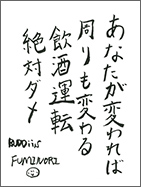 あなたが変われば
周りも変わる
飲酒運転
絶対ダメ
BUDDiiS
FUMINORI